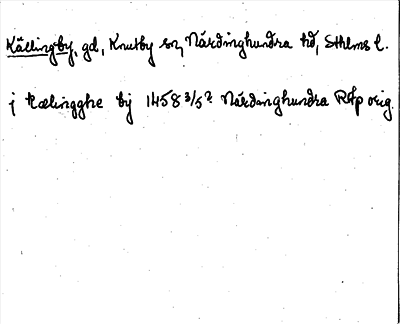 Källingby, gd, Knutby sn, Närdinghundra hd, Sthlms l.
j kælingghe bij 1458 3/5? Närdinghundra RAp orig.